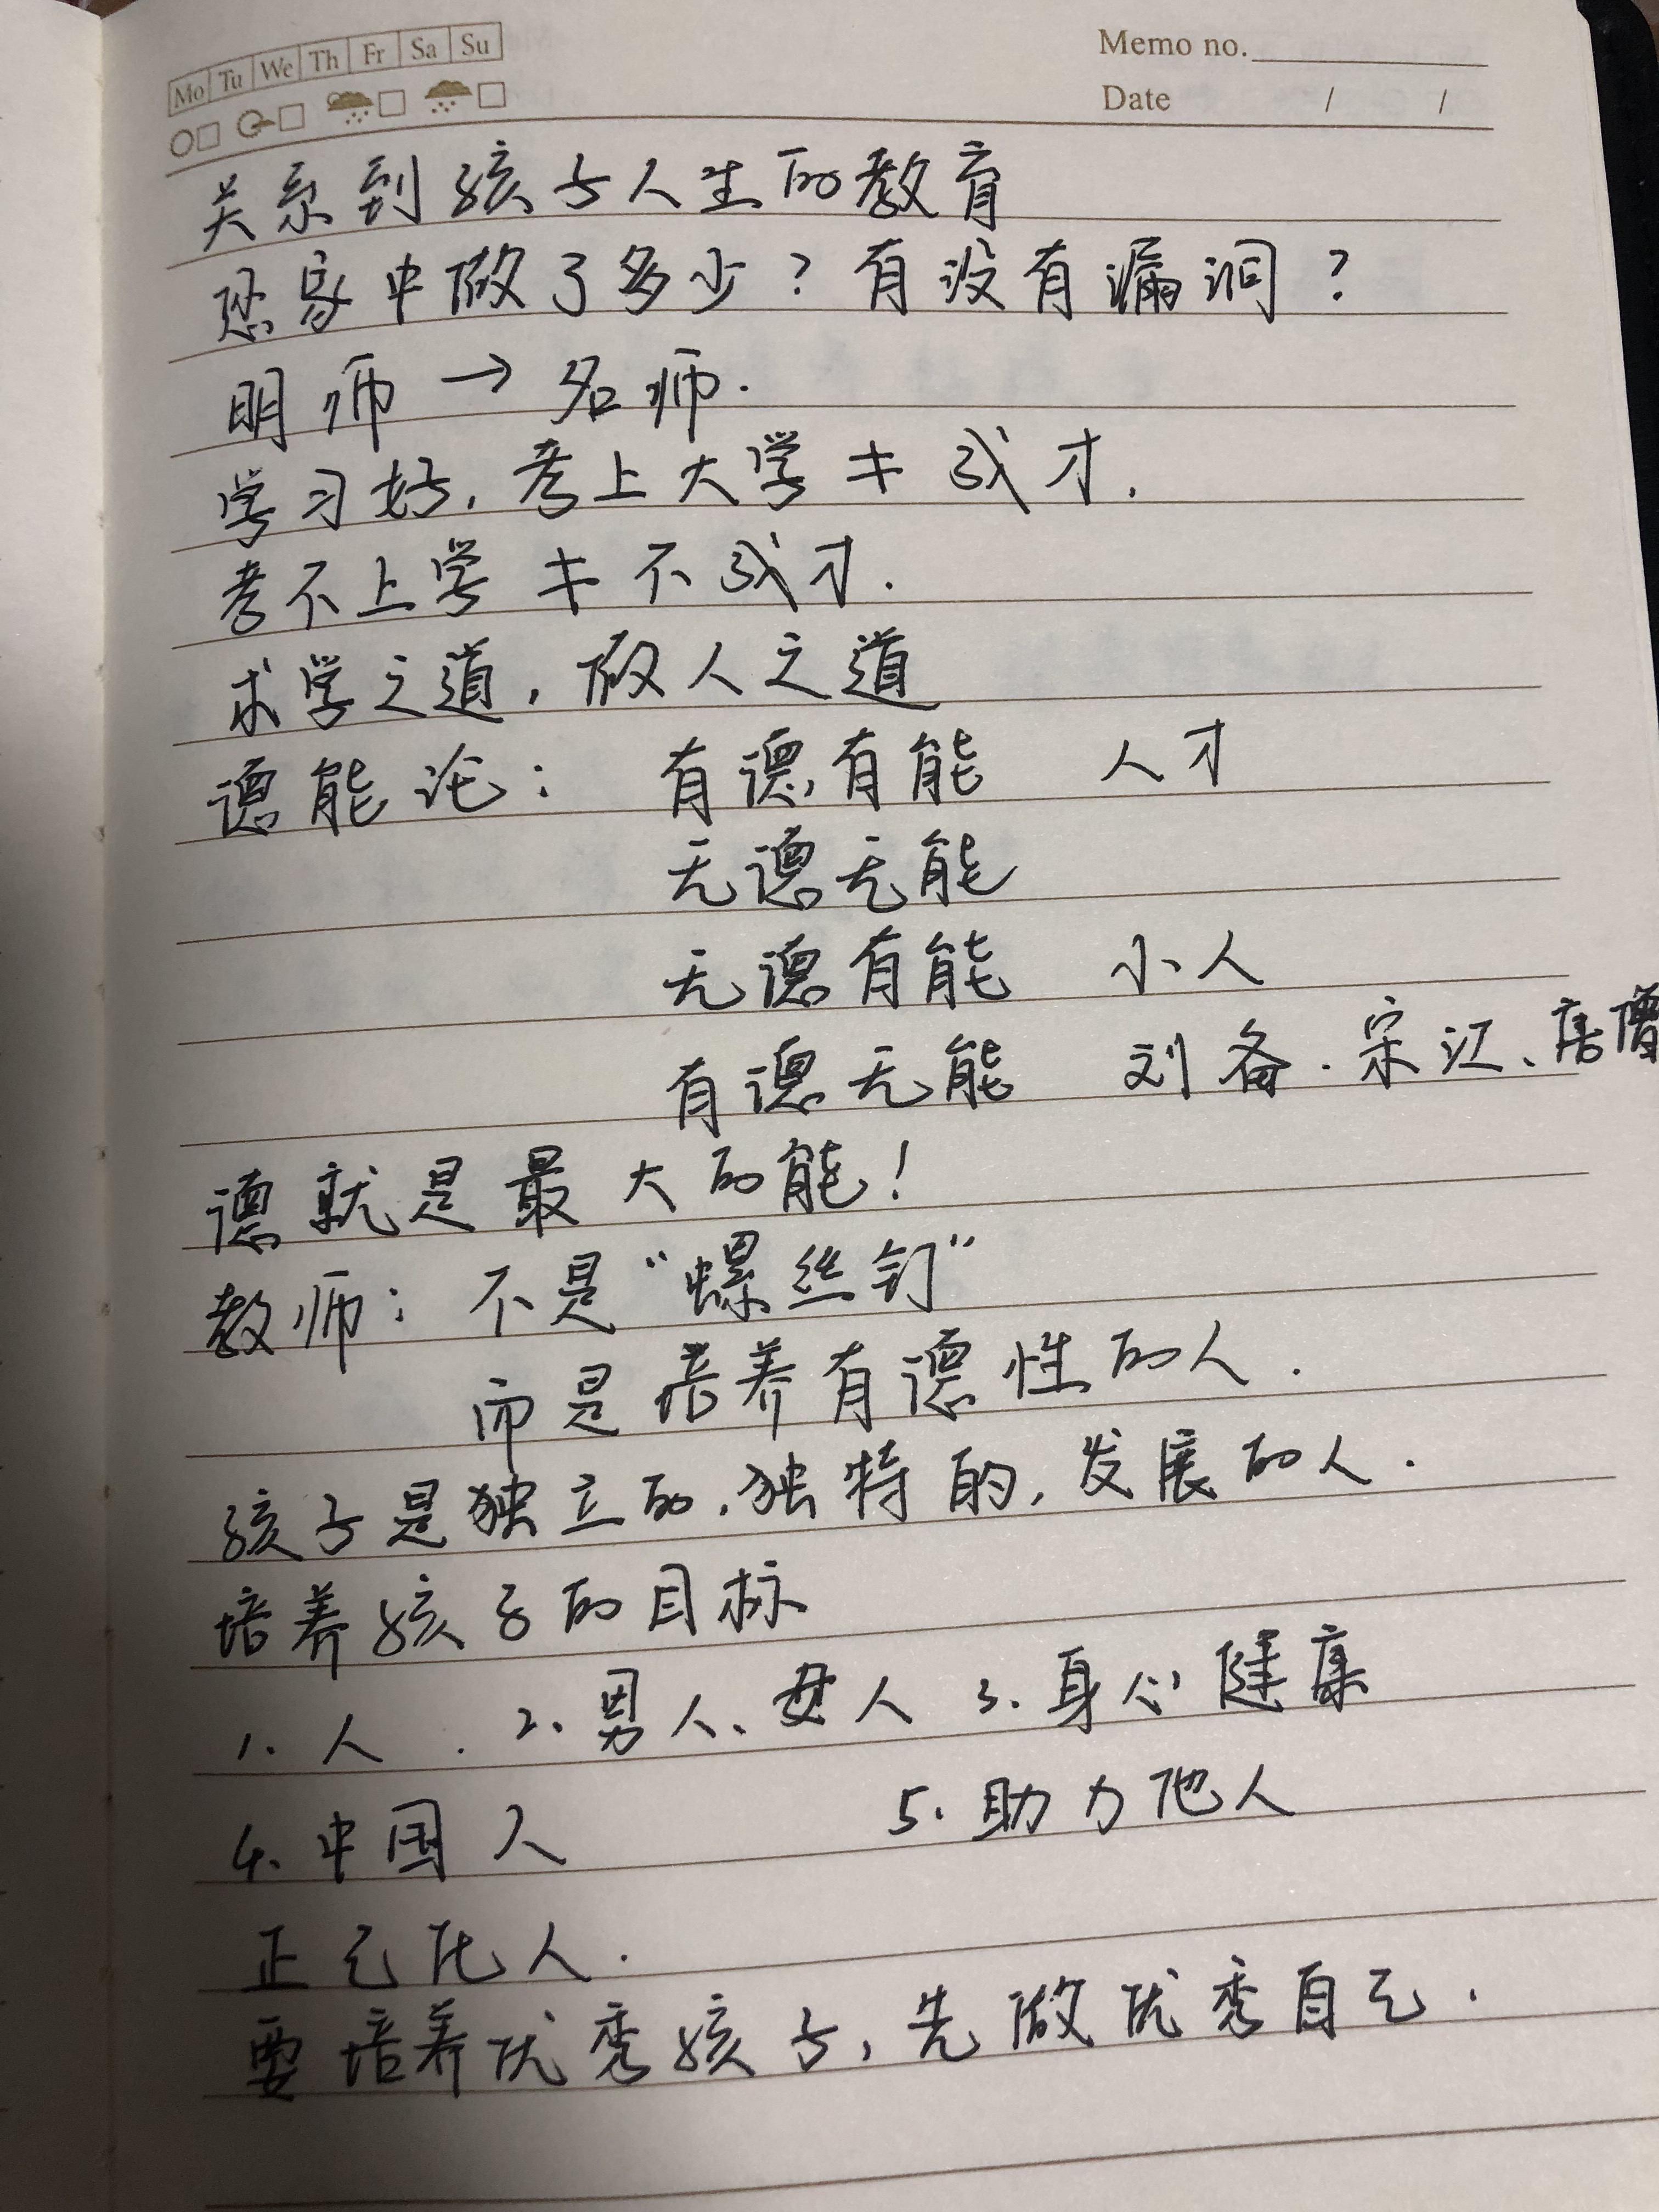 Mo Tu We Th Fr Sa Su
Memo no.
Date / /
关系到孩子人生的教育
您家中做了多少？有没有漏洞？
明师→名师.
学习好,考上大学≠成才.
考不上学≠不成才.
求学之道,做人之道
德能论: 有德有能 人才
无德无能
无德有能 小人
有德无能 刘备.宋江、唐僧
德就是最大的能!
教师:不是“螺丝钉”
而是培养有德性的人.
孩子是独立的,独特的,发展的人.
培养孩子的目标
1.人. 2.男人、女人 3.身心健康
4.中国人 5.助力他人
正己化人.
要培养优秀孩子,先做优秀自己.